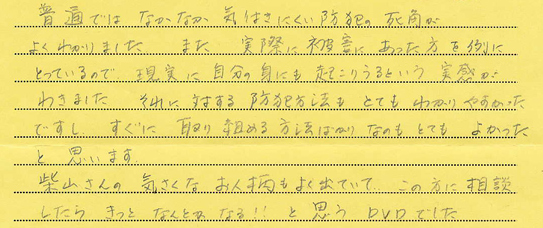 普通では なかなか 気付きにくい防犯の 死角が
よくわかりました また 実際に被害にあった方を例に
とっているので 現実に自分の身にも起こりうるという 実感が
わきました それに対する 防犯方法も とてもわかりやすかった
ですし すぐに 取り組める方法ばかり なのも とても よかった
と 思います
柴山さんの 気さくな お人柄もよく出ていて この方に相談
したら きっと なんとかなる!! と 思う DVDでした